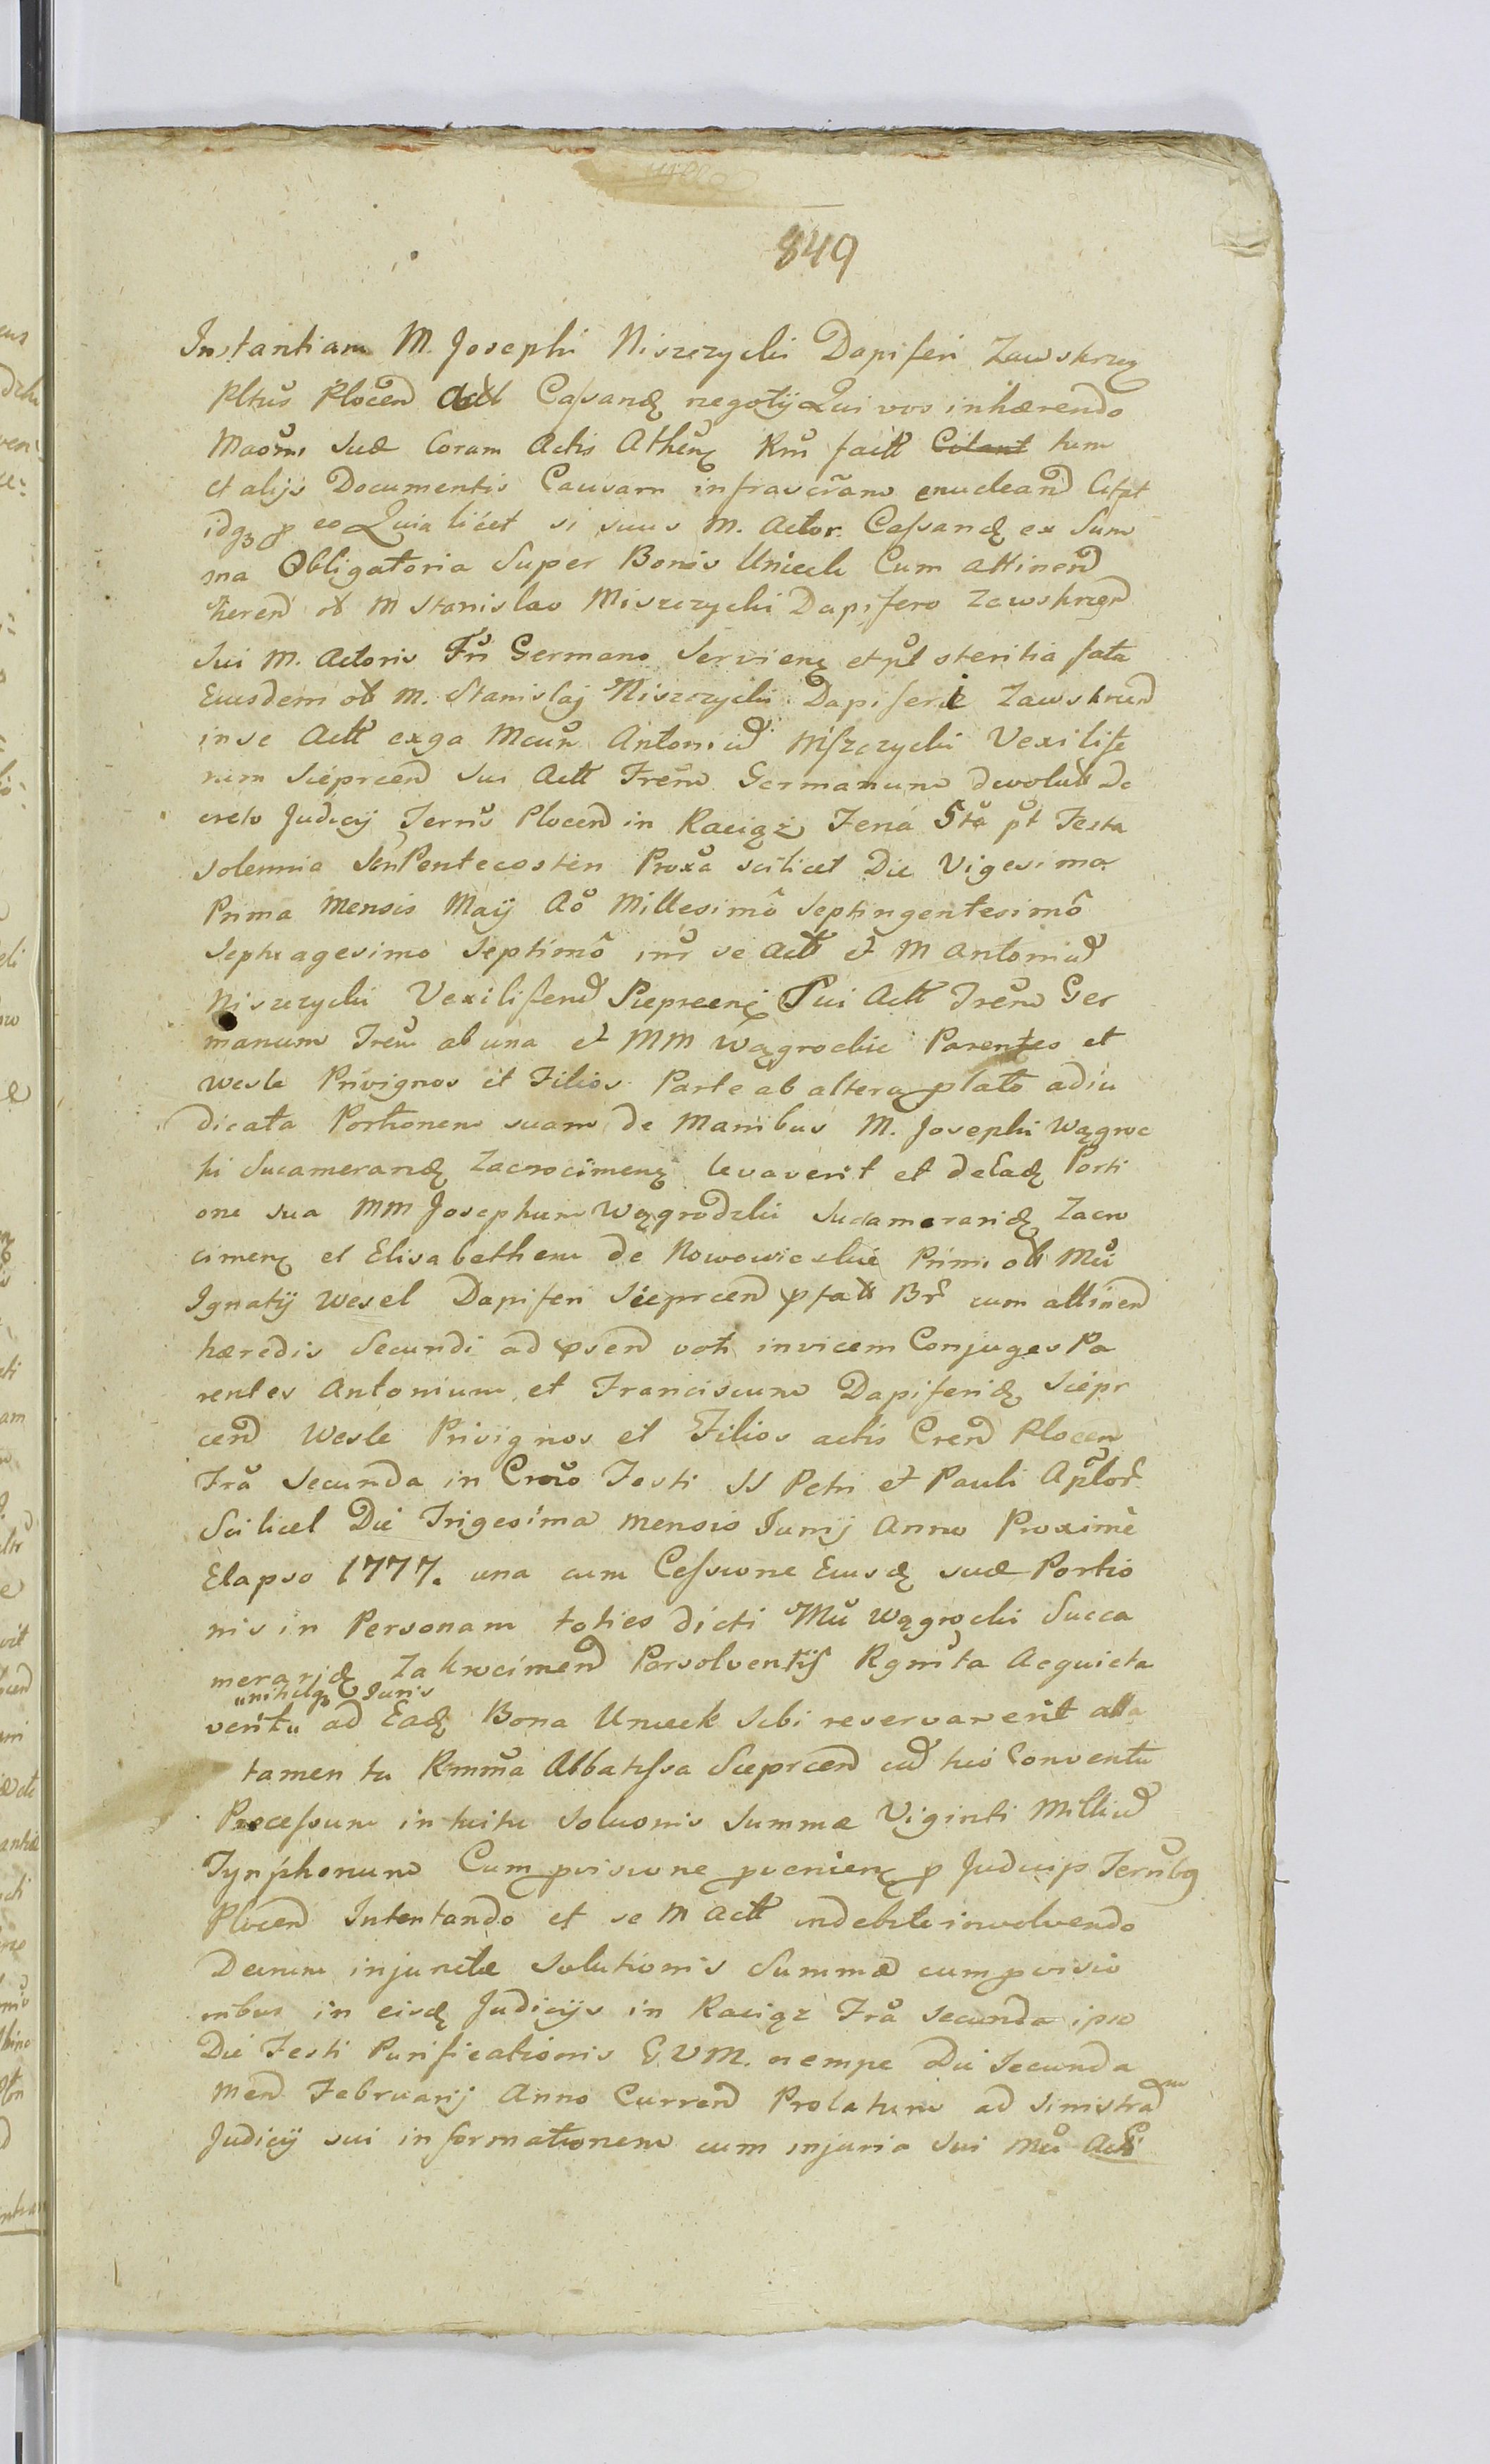 849
Instantiam M. Josephi Niszczycki Dapiferi Zawskrzeń
Pltūs Plocen Actl Caſsandę negotij Qui vos inhærendo
Maōni suæ Coram Actis Athēn Rm factt Citant tum
et alijs Documentis Causam infrascrānd enucleand Citat
idqȝ p eo Quia licet si suus M. Actor Caſsandę ex Sum
ma Obligatoria Super Bonis Unieck Cum attinend
hæred ol M Stanislao Niszczycki Dapifero Zawskrzen
sui M. Actoris Frī Germano Servien et pt steritia fata
Eiusdem ol M. Stanislaj Niszczycki Dapiferi Zawskrzen
in se Actt erga Mcum Antoniū Niſzczycki Vexilife
rum Sieprcen sui Actt Frēm Germanum devolut De
creto Judicij Terrīs Plocen in Raciąż Feria 5tā pt Festa
solennia Sen Pentecosten Proxa scilicet Die Vigesima
Prima Mensis Maij Aō Millesimô Septingentesimô
Septuagesimo Septimô inr se Actt et M Antoniū
Niszczycki Vexiliferū Sieprcen Sui Actt Frēm Ger
manum Frēm ab una et MM Wągrockie Parentes et
Wesle Privignos et Filios Parte ab altera plato adiu
dicata Portionem suam de Manibus M. Josephi Wągroc
ki Sucamerarię Zacrocimen levaverit et de Eadę Porti
one sua MM Josephum Wągrodzki Sucamerarię Zacro
cimen et Elisabetham de Nowowieskie Primi ol Mci
Ignatij Wesel Dapiferi Sieprcen pfatt Br cum attinend
hæredis Secundi ad psend voti invicem Conjuges Pa
rentes Antonium et Franciscum Dapiferidę Siepr
cen Wesle Privignos et Filios actis Cren Plocen
Frā Secunda in Cr̄o Festi SS Petri et Pauli Aplor
Scilicet Die Trigesima Mensis Junij Anno Proxime
Elapso 1777. una cum Ceſsione Eiusdę suæ Portio
nis in Personam toties dicti Mci Wągrocki Succa
merarię Zakrocimen Parsolventis Rgnīta Acquieta
„nihilqȝ Juris
verit„ ad Eadę Bona Unieck sibi reservaverit atta
tamen tu Rmma Abbatiſsa Sieprcen cū tuo Conventu
Proceſsum intuitu Soluōnis Summæ Viginti Milliū
Tynphonum Cum pvisione pvenien p Judicijs Terrībȝ
Plocen Intentando et se M Actt indebite involvendo
Decrum injunctæ Solutionis Summæ cum pvisio
nibus in eisdę Judicijs in Raciąż Frā Secunda ipso
Die Festi Purificationis B.V.M. nempe Die Secunda
Mens Februarij Anno Curren Prolatum ad Sinistram
Judicij sui informationem cum injuria sui Mci Acti